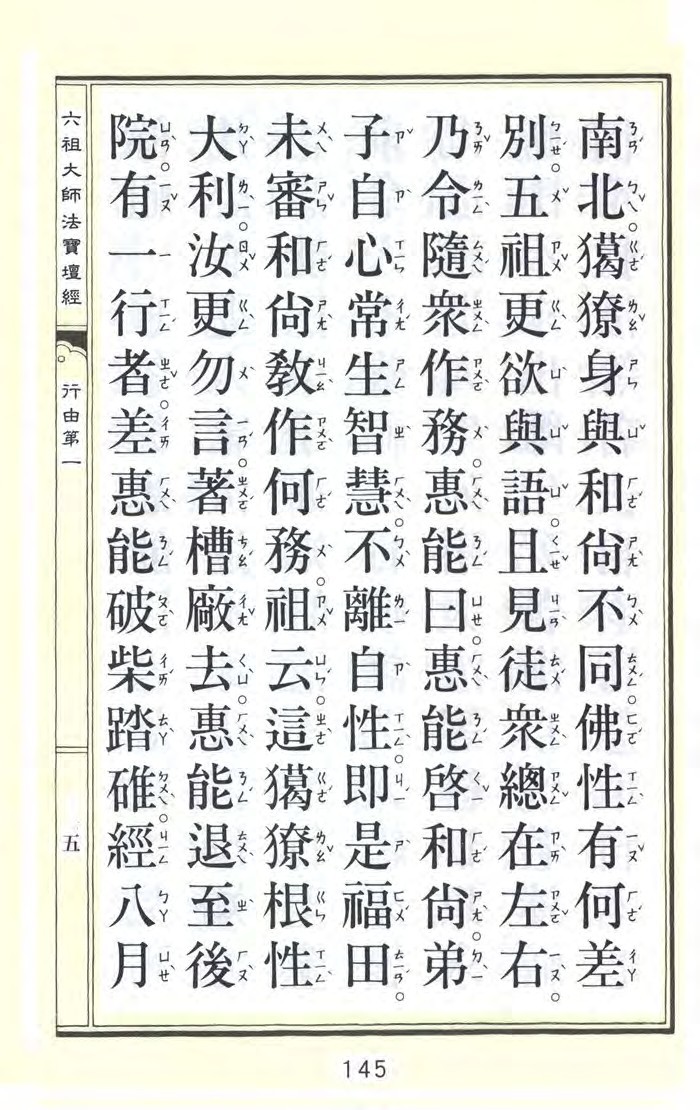 南北獦獠身與和尙不同。佛性有何差
別。五祖更欲與語。且見徒衆總在左右。
乃令隨衆作務。惠能曰。惠能啓和尙。弟
子自心常生智慧。不離自性。即是福田。
未審和尙敎作何務。祖云。這獦獠根性
大利。汝更勿言。著槽廠去。惠能退至後
院。有一行者。差惠能破柴踏碓。經八月
六祖大師法寶壇經
行由第一
五
145